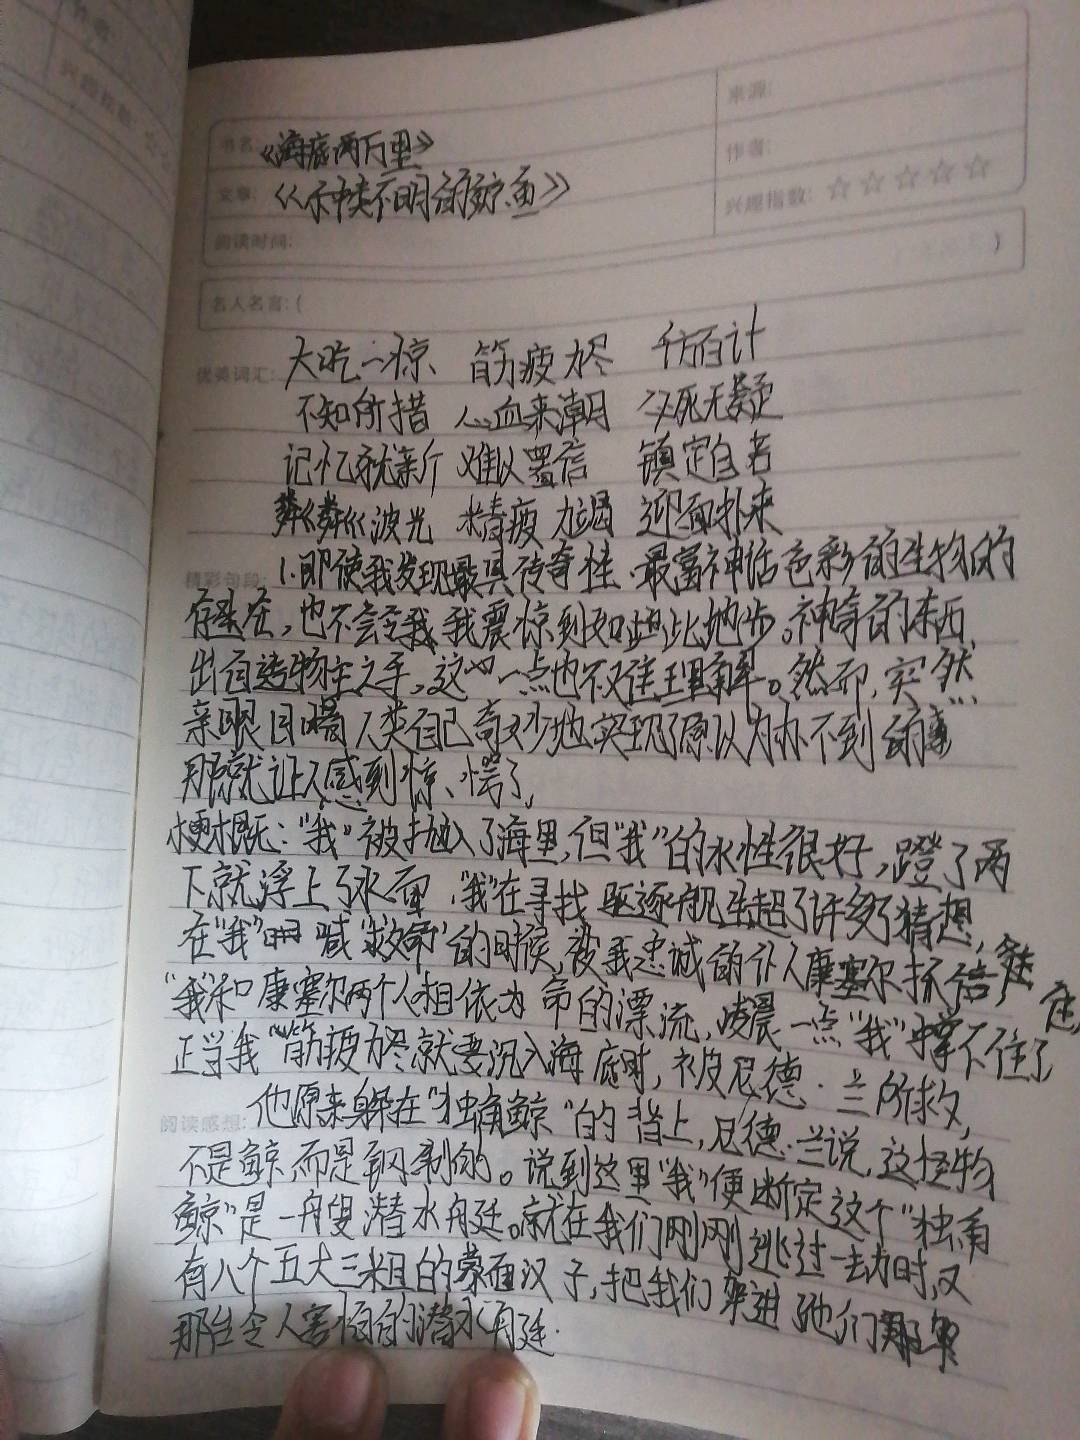 作者
兴趣指数:☆☆
书名:《海底两万里》
来源:
作者:
文章:《〈种类不明的鲸鱼》〉
兴趣指数:☆☆☆☆☆
阅读时间:
名人名言:( )
优美词汇:大吃一惊 筋疲力尽 千方百计
不知所措 心血来潮 必死无疑
记忆犹新 难以置信 镇定自若
粼粼波光 精疲力竭 迎面扑来
精彩句段:1.即使我发现最具传奇性、最富神话色彩的生物的
存在,也不会令我我震惊到如此地步。神奇的东西
出自造物主之手,这一点也不难理解。然而,突然
亲眼目睹人类自己奇妙地实现了原以为办不到的事
那就让人感到惊慌了,
梗概:“我”被抛入了海里,但“我”的水性很好,蹬了两
下就浮上了水面,“我”在寻找驱逐舰生起了许多猜想,
在“我”喊“救命”的时候,被我忠诚的仆人康塞尔抓住,
“我和康塞尔两个人相依为命的漂流,凌晨一点“我”撑不住了
正当我“筋疲力尽就要沉入海底时,被尼德·兰所救,
阅读感想:他原来躲在“独角鲸”的背上,尼德·兰说,这怪物
不是鲸,而是钢制的。说到这里“我”便断定这个“独角
鲸”是一艘潜水艇。就在我们刚刚逃过一劫时,又
有八个五大三粗的蒙面汉子,把我们架进他们那
那台令人害怕的潜水艇.